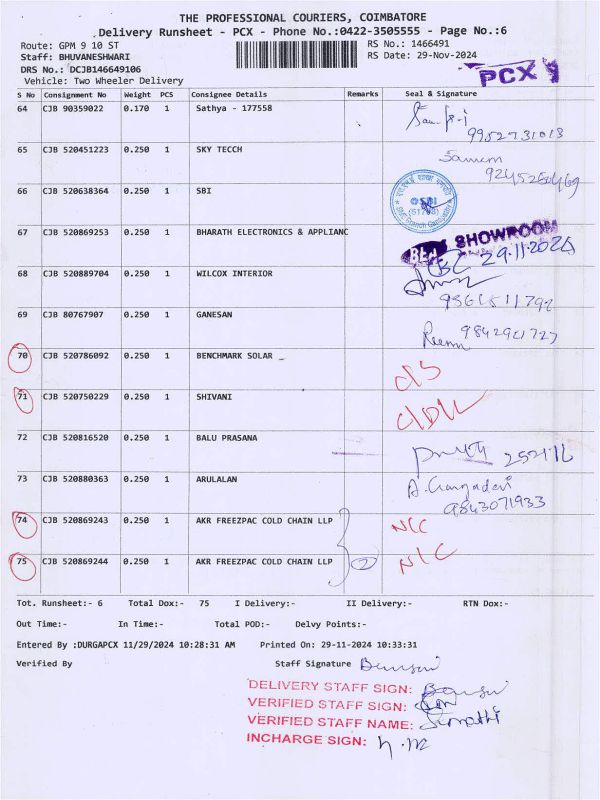 THE PROFESSIONAL COURIERS, COIMBATORE
Delivery Runsheet - PCX - Phone No.:0422-3505555 - Page No.:6
Route: GPM 9 10 ST RS No.: 1466491
Staff: BHUVANESHWARI RS Date: 29-Nov-2024
DRS No.: DCJB146649106
Vehicle: Two Wheeler Delivery
PCX
S No Consignment No Weight PCS Consignee Details Remarks Seal & Signature
64 CJB 90359022 0.170 1 Sathya - 177558
9952731013
65 CJB 520451223 0.250 1 SKY TECCH
66 CJB 520638364 0.250 1 SBI
SBI
67 CJB 520869253 0.250 1 BHARATH ELECTRONICS & APPLIANC
SHOWROOM
29.11.2024
68 CJB 520889704 0.250 1 WILCOX INTERIOR
69 CJB 80767907 0.250 1 GANESAN
70 CJB 520786092 0.250 1 BENCHMARK SOLAR
71 CJB 520750229 0.250 1 SHIVANI
72 CJB 520816520 0.250 1 BALU PRASANA
73 CJB 520880363 0.250 1 ARULALAN
9843071933
74 CJB 520869243 0.250 1 AKR FREEZPAC COLD CHAIN LLP
75 CJB 520869244 0.250 1 AKR FREEZPAC COLD CHAIN LLP 2
Tot. Runsheet:- 6 Total Dox:- 75 I Delivery:- II Delivery:- RTN Dox:-
Out Time:- In Time:- Total POD:- Delvy Points:-
Entered By ;DURGAPCX 11/29/2024 10:28:31 AM Printed On: 29-11-2024 10:33:31
Verified By Staff Signature
DELIVERY STAFF SIGN:
VERIFIED STAFF SIGN:
VERIFIED STAFF NAME:
INCHARGE SIGN: